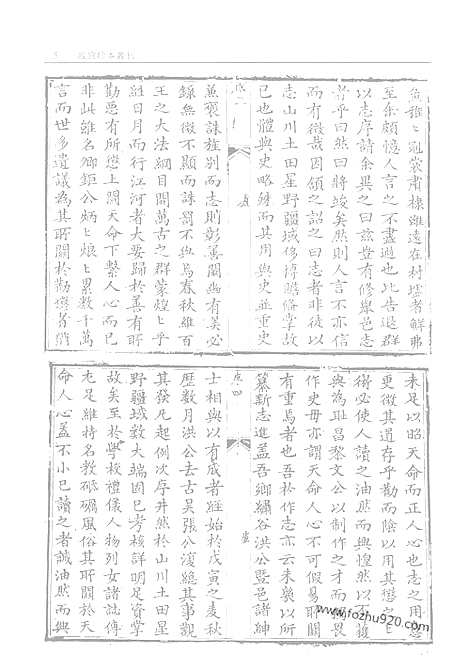 故宫珍本叢刊
魚雅雅冠裳肅穆雖遠在村墟者鮮弗
至余頗憶人言之不盡過也比告退群
以志序請余異之曰茲豈有修舉邑志
者乎曰然曰將竣矣然則人言不亦信
而有徵哉因領之詔之曰志者非徒以
志山川土田星野疆域修博贍條掌故
已也體與史略殊而其用與史並重史
序三
寓褒誅旌別而志則彰善闡幽有美必
錄無微不顯而誅罰不與焉春秋維百
王之大法綱目開萬古之群蒙煌煌乎
經日月而行江河者大要歸於善有所
勸惡有所懲上關天命下繫人心而已
非此雖名卿鉅公炳炳烺烺累數千萬
言而世多遺議為其所關於勸懲者淺
未足以昭天命而正人心也志之用
更微其道存乎勸而陰以用其懲
術必使人讀之油然而興惶然以
與為耻昌黎文公以制作之才而
作史毋亦謂天命人心不可假易所關
有重焉者也吾於作志亦云未幾以所
纂新志進蓋吾鄉繡谷洪公暨邑諸紳
序四
士相與以有成者經始於戊寅之麥秋
歷數月洪公去古吳張公瀠總其事觀
其發凡起例次序井然於山川土田星
野疆域數大端固已考核詳明足資掌
故矣至於學校禮儀人物列女諸誌傳
尤足維持名教砥礪風俗其所關於天
命人心蓋不小已讀之者誠油然而興
www.fozhu920.com